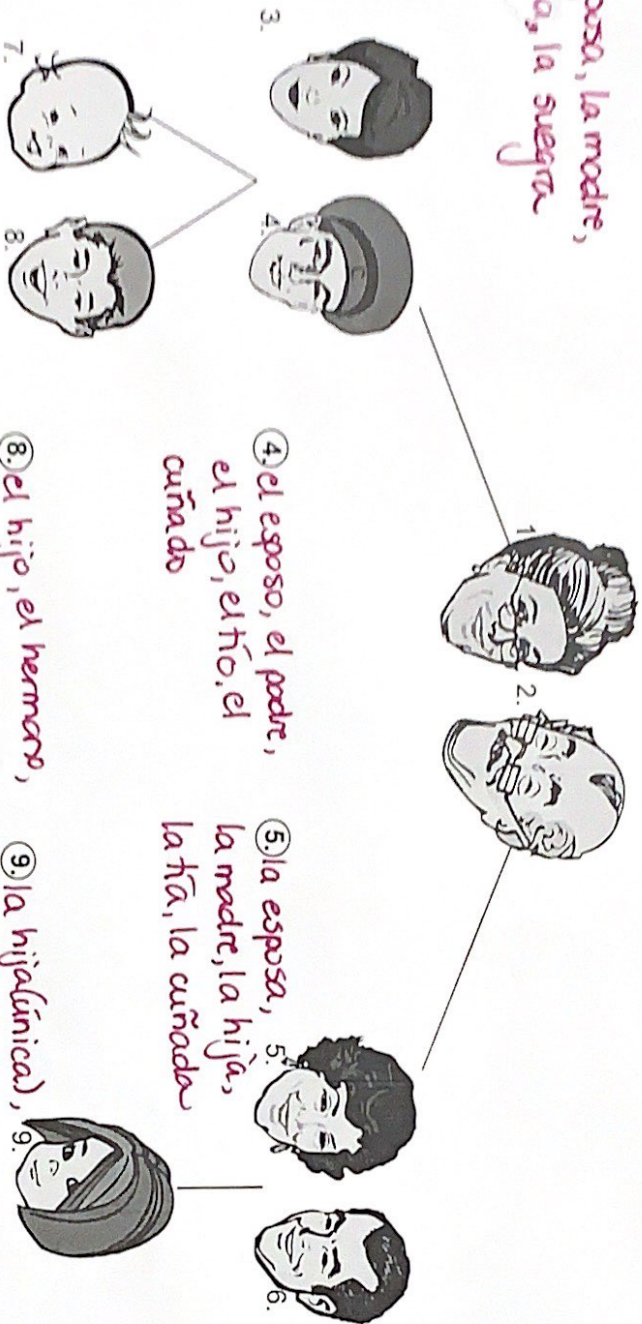 posa, la madre,
a, la suegra
1
2.
3.
4.
④. el esposo, el padre,
el hijo, el tío, el
cuñado
⑤. la esposa,
la madre, la hija,
la tía, la cuñada
5.
6.
7.
8.
⑧. el hijo, el hermano,
⑨. la hija (única),
9.